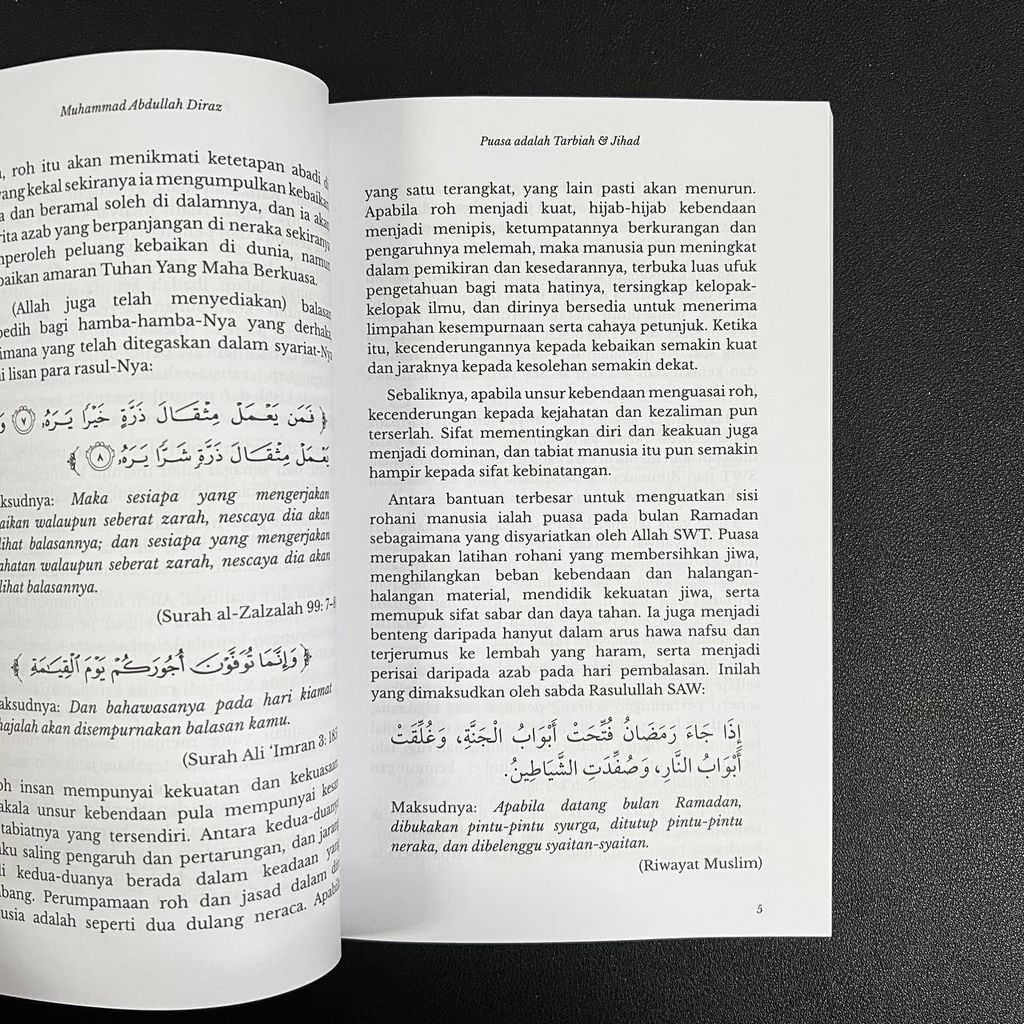 Muhammad Abdullah Diraz
roh itu akan menikmati ketetapan abadi
kekal sekiranya ia mengumpulkan kebaikan
dan beramal soleh di dalamnya, dan ia akan
azab yang berpanjangan di neraka sekiranya
peluang kebaikan di dunia, namun
amaran Tuhan Yang Maha Berkuasa.
(Allah juga telah menyediakan) balasan
pedih bagi hamba-hamba-Nya yang derhaka
yang telah ditegaskan dalam syariat-Nya
lisan para rasul-Nya:
﴿ فَمَن يَعْمَلْ مِثْقَالَ ذَرَّةٍ خَيْرًا يَرَهُۥ ٧
يَعْمَلْ مِثْقَالَ ذَرَّةٍ شَرًّا يَرَهُۥ ٨ ﴾
Maka sesiapa yang mengerjakan
walaupun seberat zarah, nescaya dia akan
balasannya; dan sesiapa yang mengerjakan
walaupun seberat zarah, nescaya dia akan
balasannya.
(Surah al-Zalzalah 99: 7-8)
﴿ وَإِنَّمَا تُوَفَّوْنَ أُجُورَكُمْ يَوْمَ الْقِيَامَةِ ﴾
Dan bahawasanya pada hari kiamat
akan disempurnakan balasan kamu.
(Surah Ali ‘Imran 3: 185
insan mempunyai kekuatan dan kekuasaan
unsur kebendaan pula mempunyai kesan
tabiatnya yang tersendiri. Antara kedua-duanya
saling pengaruh dan pertarungan, dan jarang
kedua-duanya berada dalam keadaan yang
Perumpamaan roh dan jasad dalam diri
adalah seperti dua dulang neraca. Apabila
Puasa adalah Tarbiah & Jihad
yang satu terangkat, yang lain pasti akan menurun.
Apabila roh menjadi kuat, hijab-hijab kebendaan
menjadi menipis, ketumpatannya berkurangan dan
pengaruhnya melemah, maka manusia pun meningkat
dalam pemikiran dan kesedarannya, terbuka luas ufuk
pengetahuan bagi mata hatinya, tersingkap kelopak-
kelopak ilmu, dan dirinya bersedia untuk menerima
limpahan kesempurnaan serta cahaya petunjuk. Ketika
itu, kecenderungannya kepada kebaikan semakin kuat
dan jaraknya kepada kesolehan semakin dekat.
Sebaliknya, apabila unsur kebendaan menguasai roh,
kecenderungan kepada kejahatan dan kezaliman pun
terserlah. Sifat mementingkan diri dan keakuan juga
menjadi dominan, dan tabiat manusia itu pun semakin
hampir kepada sifat kebinatangan.
Antara bantuan terbesar untuk menguatkan sisi
rohani manusia ialah puasa pada bulan Ramadan
sebagaimana yang disyariatkan oleh Allah SWT. Puasa
merupakan latihan rohani yang membersihkan jiwa,
menghilangkan beban kebendaan dan halangan-
halangan material, mendidik kekuatan jiwa, serta
memupuk sifat sabar dan daya tahan. Ia juga menjadi
benteng daripada hanyut dalam arus hawa nafsu dan
terjerumus ke lembah yang haram, serta menjadi
perisai daripada azab pada hari pembalasan. Inilah
yang dimaksudkan oleh sabda Rasulullah SAW:
إِذَا جَاءَ رَمَضَانُ فُتِّحَتْ أَبْوَابُ الْجَنَّةِ، وَغُلِّقَتْ
أَبْوَابُ النَّارِ، وَصُفِّدَتِ الشَّيَاطِينُ.
Maksudnya: Apabila datang bulan Ramadan,
dibukakan pintu-pintu syurga, ditutup pintu-pintu
neraka, dan dibelenggu syaitan-syaitan.
(Riwayat Muslim)
5